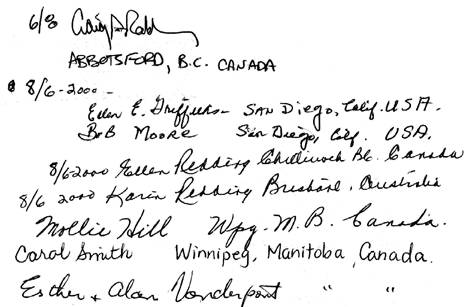 6/8 Craig A. Rabb
ABBOTSFORD, B.C. CANADA
8/6-2000 -
Ellen E. Griffiths - SAN DIEGO, Calif. USA.
BOB MOORE San Diego, Calf. USA.
8/6-2000 Redding Chilliwack BC. Canada
8/6 2000 Karin Redding Brisbane, Australia
Mollie Hill Wpg. M.B. Canada.
Carol Smith Winnipeg, Manitoba, Canada.
Esther + Alan Vanderpont " "